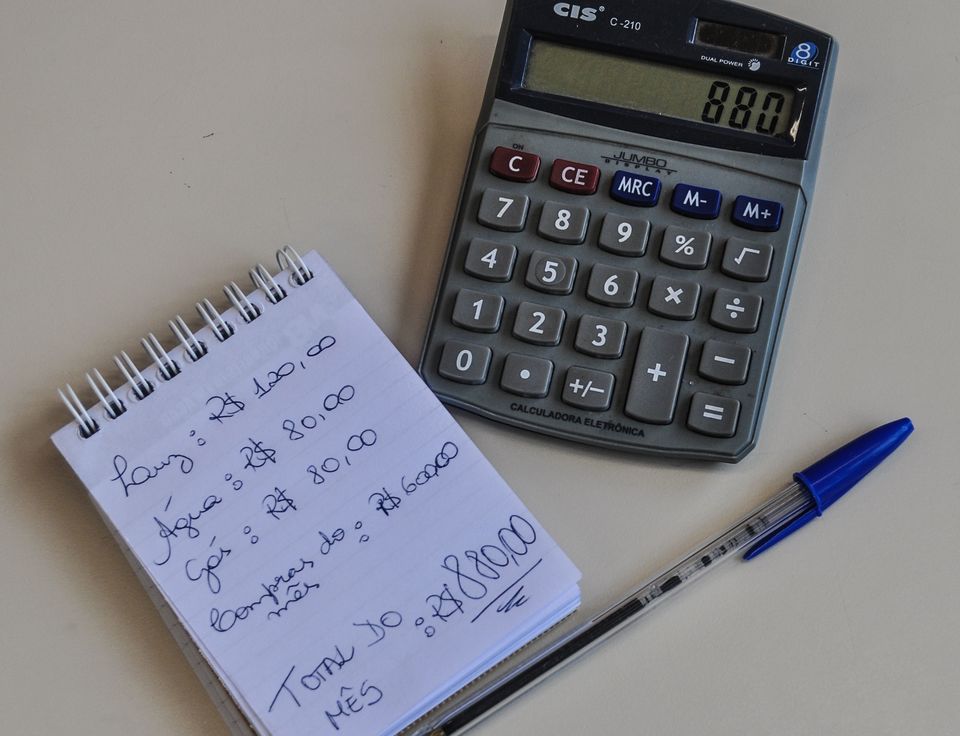 CIS® C-210
DUAL POWER
8 DIGIT
880
ON
JUMBO
DISPLAY
C CE MRC M- M+
7 8 9 % √
4 5 6 × ÷
1 2 3 + −
0 • +/− =
CALCULADORA ELETRÔNICA
Luz: R$ 120,00
Água: R$ 80,00
Gás: R$ 80,00
Compras do : R$ 600,00
mês
TOTAL DO : R$ 880,00
MÊS